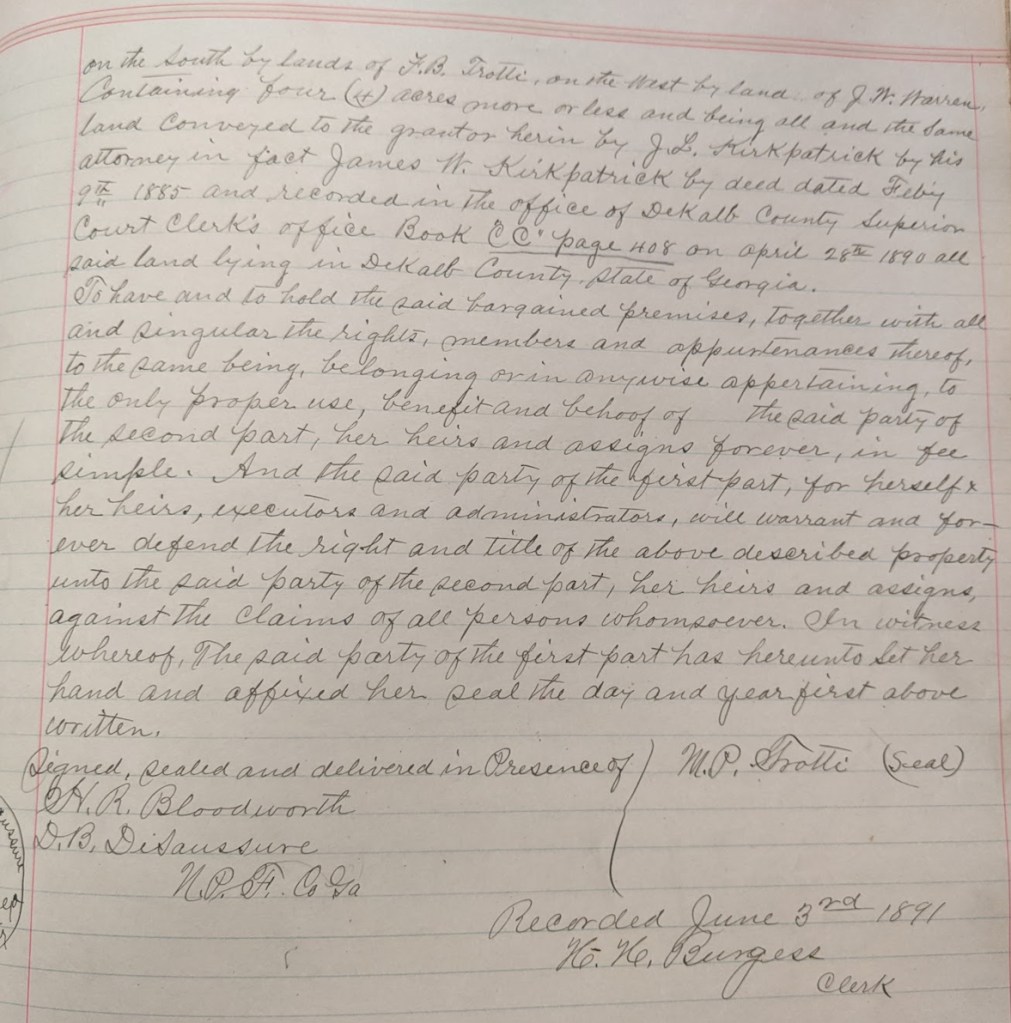 on the South by lands of F.B. Trotti, on the West by land of J.W. Warren,
Containing four (4) acres more or less and being all and the same
land conveyed to the grantor herin by J.L. Kirkpatrick by his
attorney in fact James W. Kirkpatrick by deed dated Feby
9th 1885 and recorded in the office of DeKalb County Superior
Court Clerk's office Book "CC" page 408 on april 28th 1890 all
said land lying in DeKalb County, State of Georgia.
To have and to hold the said bargained premises, together with all
and singular the rights, members and appurtenances thereof,
to the same being, belonging or in anywise appertaining, to
the only proper use, benefit and behoof of the said party of
the second part, her heirs and assigns forever, in fee
simple. And the said party of the first part, for herself &
her heirs, executors and administrators, will warrant and for-
ever defend the right and title of the above described property
unto the said party of the second part, her heirs and assigns,
against the claims of all persons whomsoever. In witness
whereof, The said party of the first part has hereunto set her
hand and affixed her seal the day and year first above
written.
Signed, sealed and delivered in Presence of ) M.P. Trotti (Seal)
H.R. Bloodworth
D.B. DiSaussure
N.P. F. Co Ga
Recorded June 3rd 1891
H.H. Burgess
Clerk